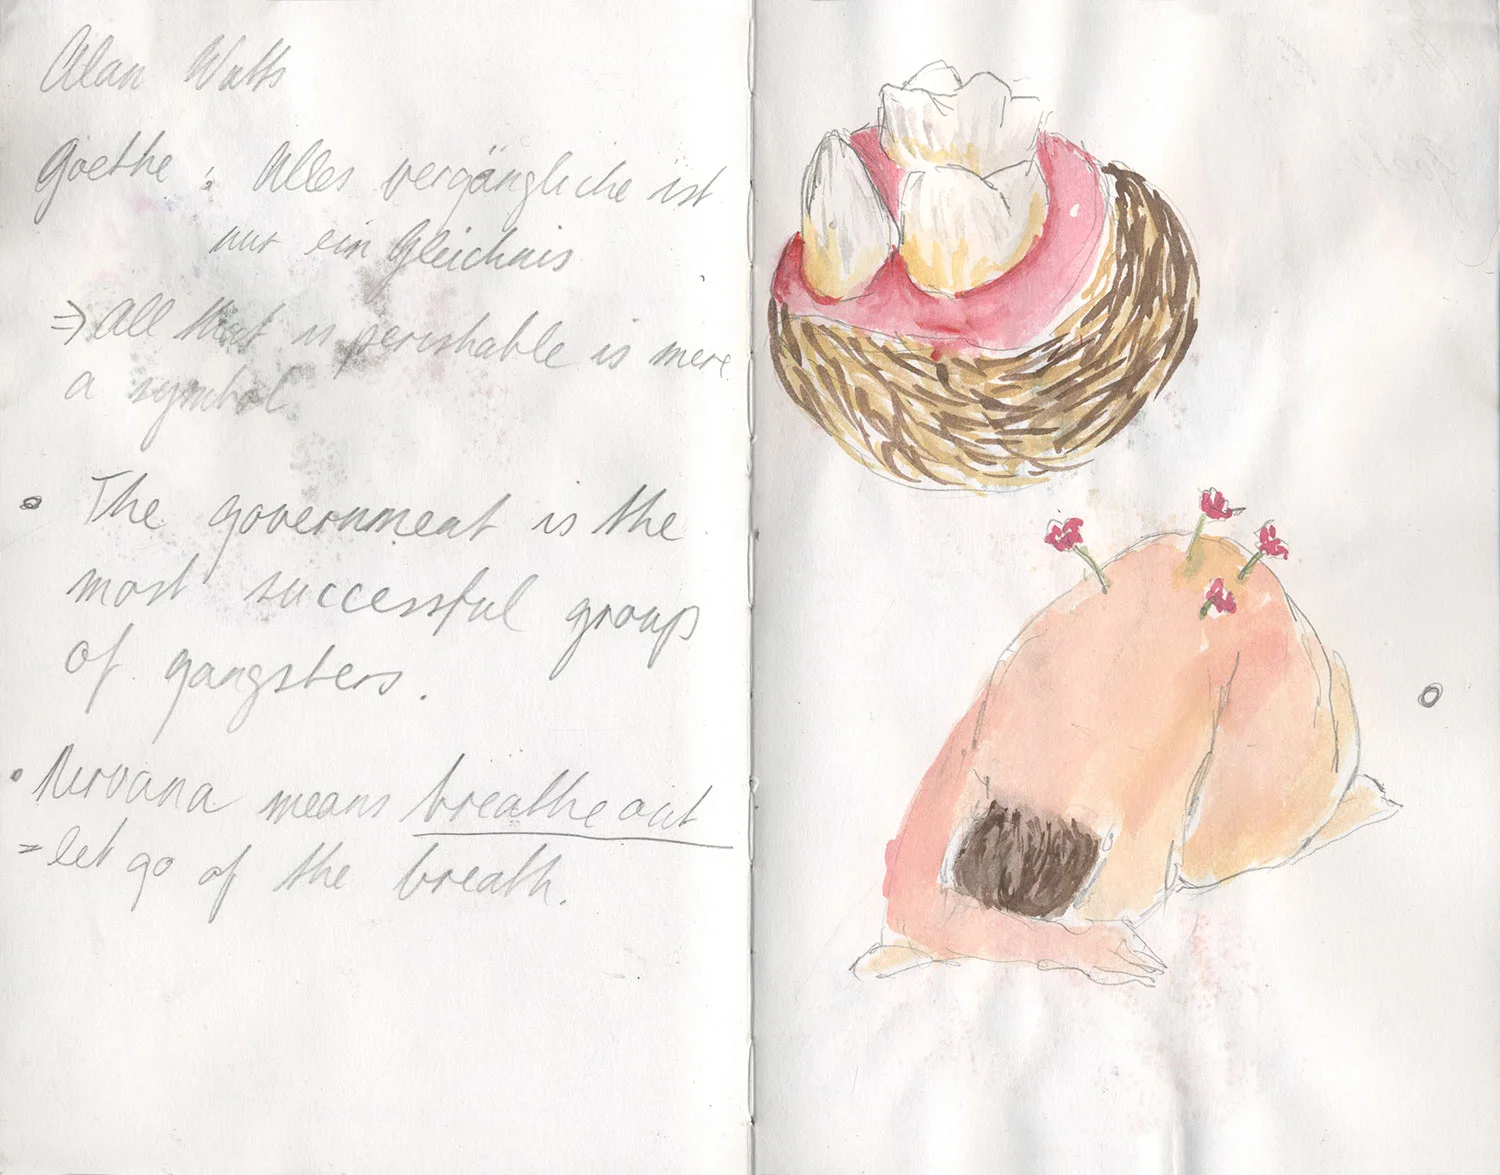 Alan Watts
Goethe : Alles vergängliche ist
nur ein Gleichnis
⇒ All that is perishable is mere
a symbol.
• The government is the
most successful group
of gangsters.
• Nirvana means breathe out
= let go of the breath.